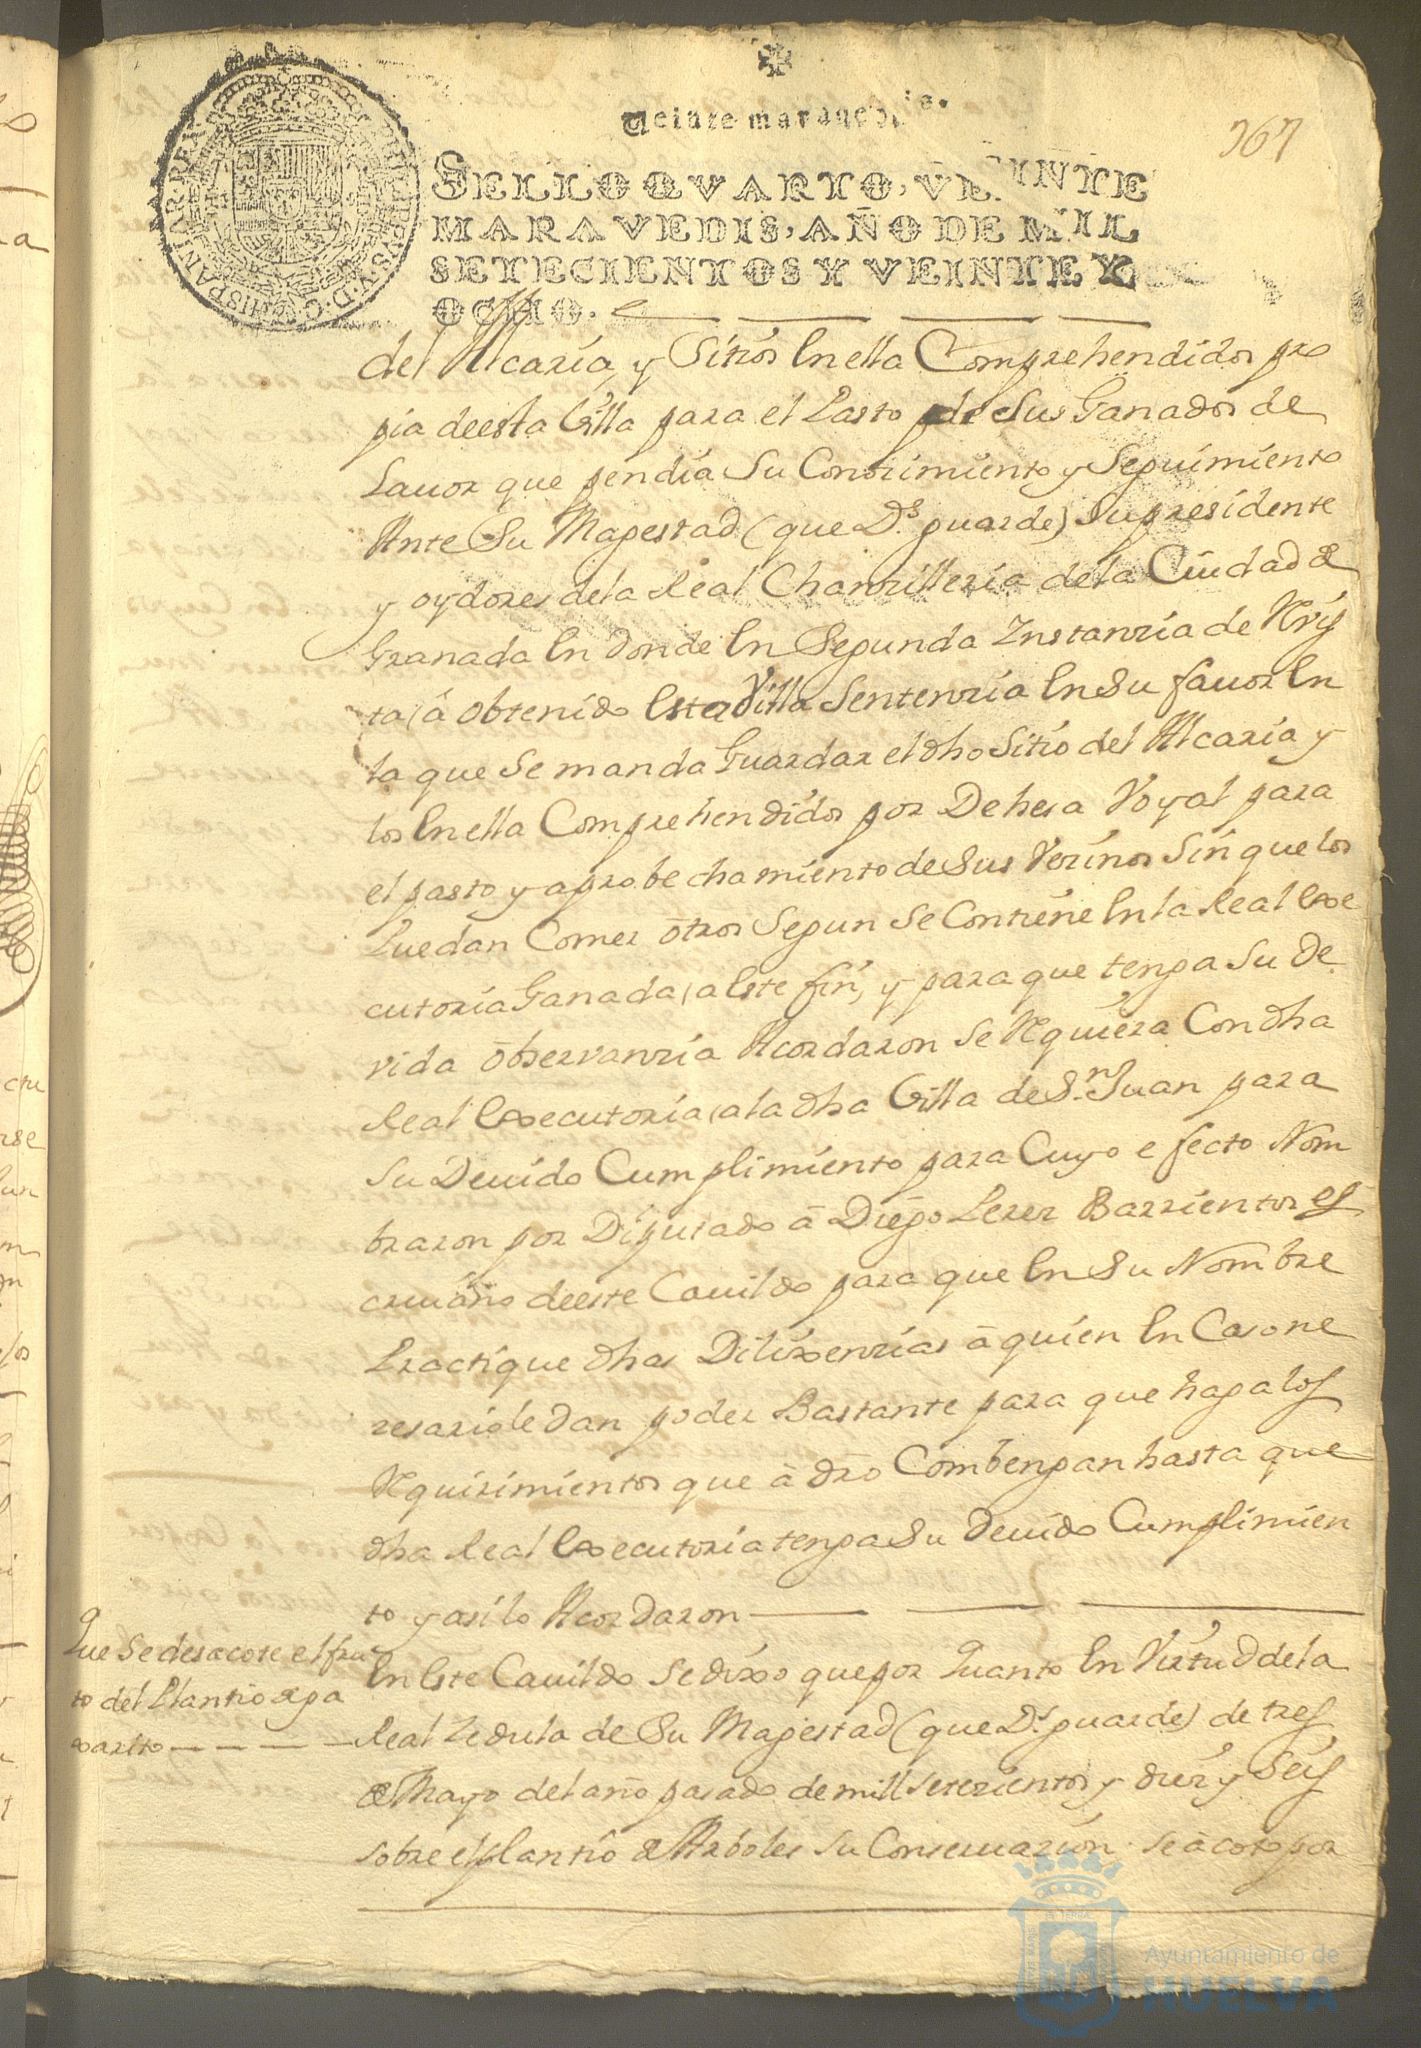 Veinte maravedis.
367
SELLO QVARTO, VEINTE
MARAVEDIS, AÑO DE MIL
SETECIENTOS Y VEINTE Y
OCHO.
del Alcaria, y Sitios en ella Comprehendidos pro
pia deesta Villa para el Pasto de sus Ganados de
Lauor que pendia Su Conocimiento y Seguimiento
Ante Su Magestad (que Ds. guarde) Su presidente
y oydores dela Real Chanzilleria dela Ciudad de
Granada En donde En Segunda Instanzia de Reuis
ta a obtenido Esta Villa Sentenzia En Su fauor En
la que Se manda Guardar el dho Sitio del Alcaria y
los En ella Comprehendidos por Dehesa Voyal para
el pasto y aprobechamiento de Sus Vezinos Sin que los
Puedan Comer otros Segun Se Contiene En la Real Exe
cutoria Ganada a Este fin, y para que tenga Su De
vida observanzia Acordaron Se Requiera Con dha
Real Executoria a la dha Villa de Sn. Juan para
Su Deuido Cumplimiento para Cuyo efecto Nom
braron por Diputado a Diego Perez Barrientos es
criuano deeste Cauildo para que En Su Nombre
Practique dhas Dilixenzias a quien En Caso ne
zesario le dan poder Bastante para que haga los
Requirimientos que a dro Combengan hasta que
dha Real Executoria tenga Su Deuido Cumplimien
to y asi lo Acordaron
Que Se desacote el fru
to del Plantio de pa
xarito
En Este Cauildo Se dixo que por Quanto En Virtud de la
Real Zedula de Su Magestad (que Ds. guarde) de tres
de Mayo del año pasado de mill setezientos y diez y Seis
sobre el plantio de Arboles Su Conseruazion se acoto por
Ayuntamiento de
HUELVA